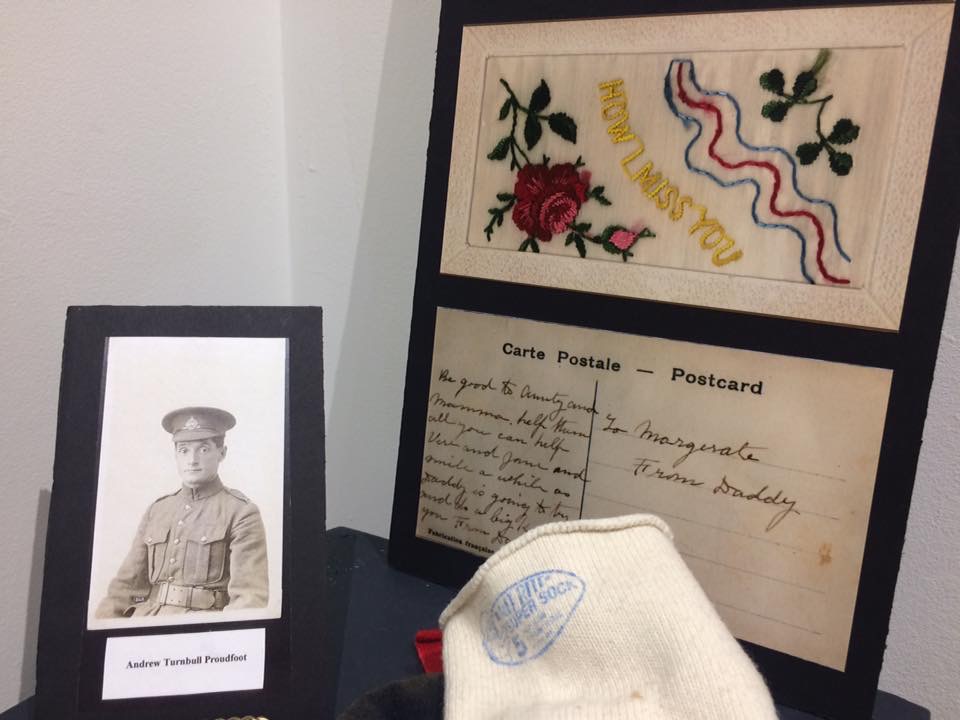 HOW I MISS YOU
Carte Postale — Postcard
Be good to Aunty and
Mamma. help them
all you can help
Vera and Jane and
smile a while as
Daddy is going to try
and
a big
you From
Fabrication française
To Margerate
From Daddy
Andrew Turnbull Proudfoot
SUPER SOCK
5